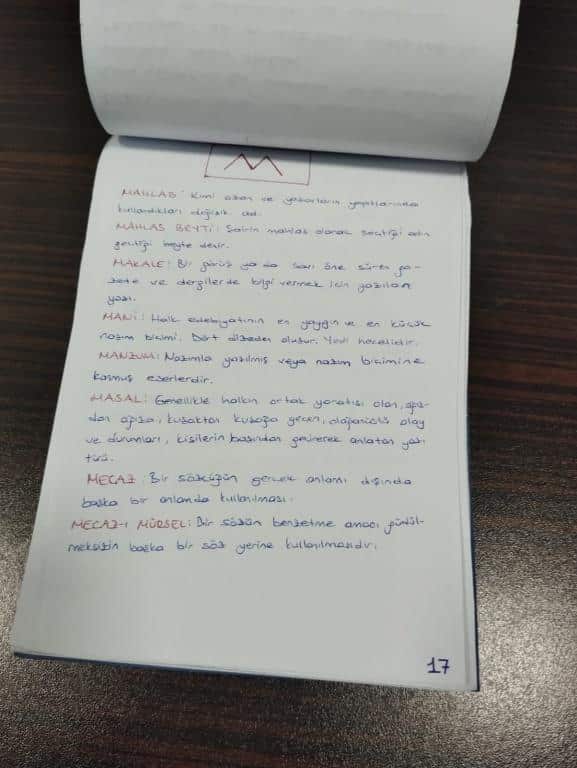 M
MAHLAS: Kimi ozan ve yazarların yapıtlarında
kullandıkları değişik ad.
MAHLAS BEYTİ: Şairin mahlas olarak seçtiği adın
geçtiği beyte denir.
MAKALE: Bir görüş ya da savı öne süren ga-
zete ve dergilerde bilgi vermek için yazılan
yazı.
MANİ: Halk edebiyatının en yaygın ve en küçük
nazım biçimi. Dört dizeden oluşur. Yedi hecelidir.
MANZUM: Nazımla yazılmış veya nazım biçimine
konmuş eserlerdir.
MASAL: Genellikle halkın ortak yaratısı olan, ağız-
dan ağıza, kuşaktan kuşağa geçen, olağanüstü olay
ve durumları, kişilerin başından geçirerek anlatan yazı
türü.
MECAZ: Bir sözcüğün gerçek anlamı dışında
başka bir anlamda kullanılması.
MECAZ-I MÜRSEL: Bir sözün benzetme amacı güdül-
meksizin başka bir söz yerine kullanılmasıdır.
17